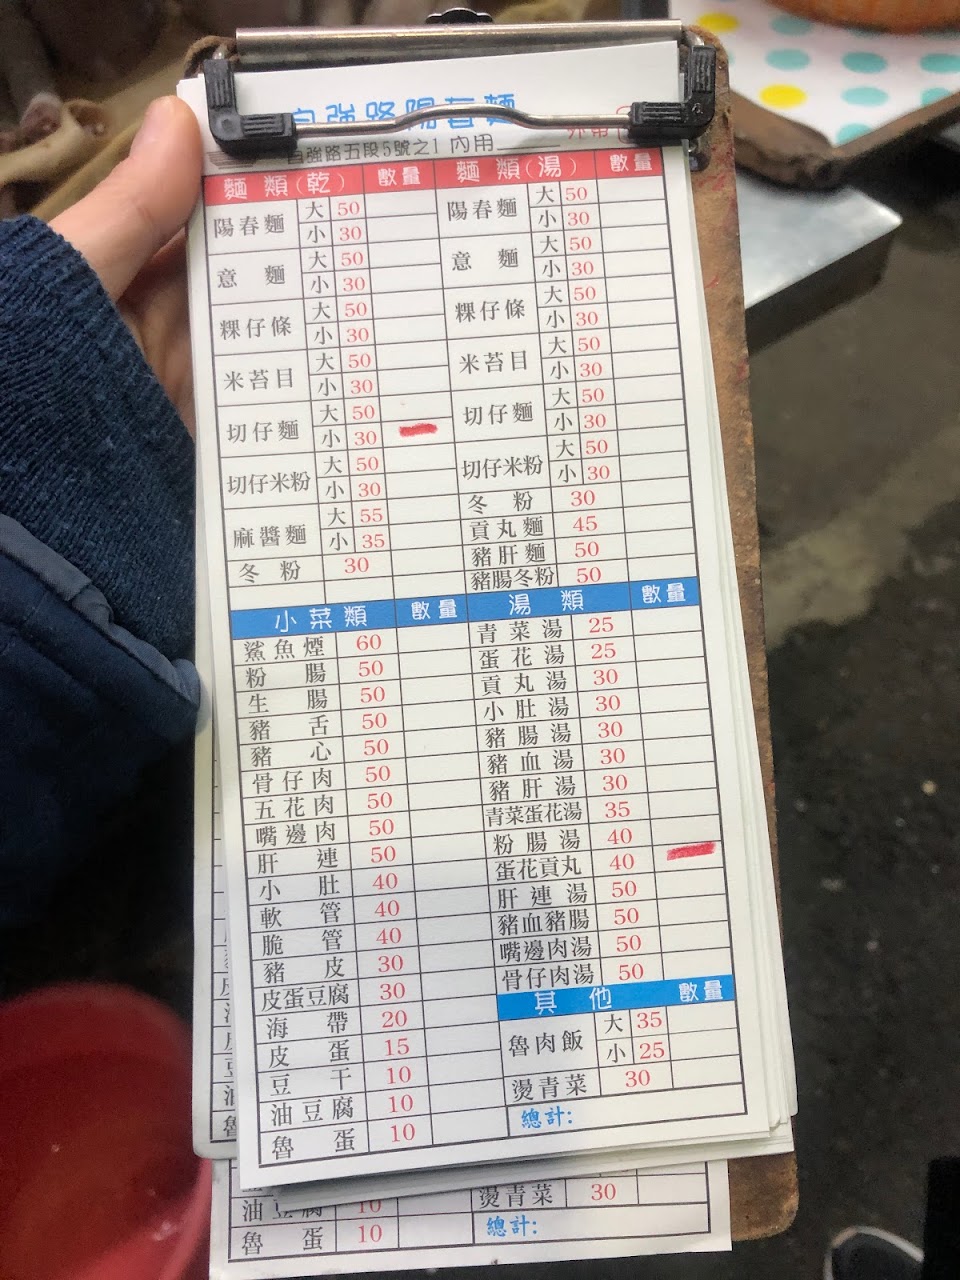 自強路陽春麵
自強路五段5號之1 內用 外帶
麵類(乾) 數量 麵類(湯) 數量
陽春麵 大 50 陽春麵 大 50
小 30 小 30
意麵 大 50 意麵 大 50
小 30 小 30
粿仔條 大 50 粿仔條 大 50
小 30 小 30
米苔目 大 50 米苔目 大 50
小 30 小 30
切仔麵 大 50 切仔麵 大 50
小 30 小 30
切仔米粉 大 50 切仔米粉 大 50
小 30 小 30
麻醬麵 大 55 冬粉 30
小 35 貢丸麵 45
冬粉 30 豬肝麵 50
豬腸冬粉 50
小菜類 數量 湯類 數量
鯊魚煙 60 青菜湯 25
粉腸 50 蛋花湯 25
生腸 50 貢丸湯 30
豬舌 50 小肚湯 30
豬心 50 豬腸湯 30
骨仔肉 50 豬血湯 30
五花肉 50 豬肝湯 30
嘴邊肉 50 青菜蛋花湯 35
肝連 50 粉腸湯 40
小肚 40 蛋花貢丸 40
軟管 40 肝連湯 50
脆管 40 豬血豬腸 50
豬皮 30 嘴邊肉湯 50
皮蛋豆腐 30 骨仔肉湯 50
海帶 20 其他 數量
皮蛋 15 魯肉飯 大 35
豆干 10 小 25
油豆腐 10 燙青菜 30
魯蛋 10 總計:
油豆腐 10 燙青菜 30
魯蛋 10 總計: